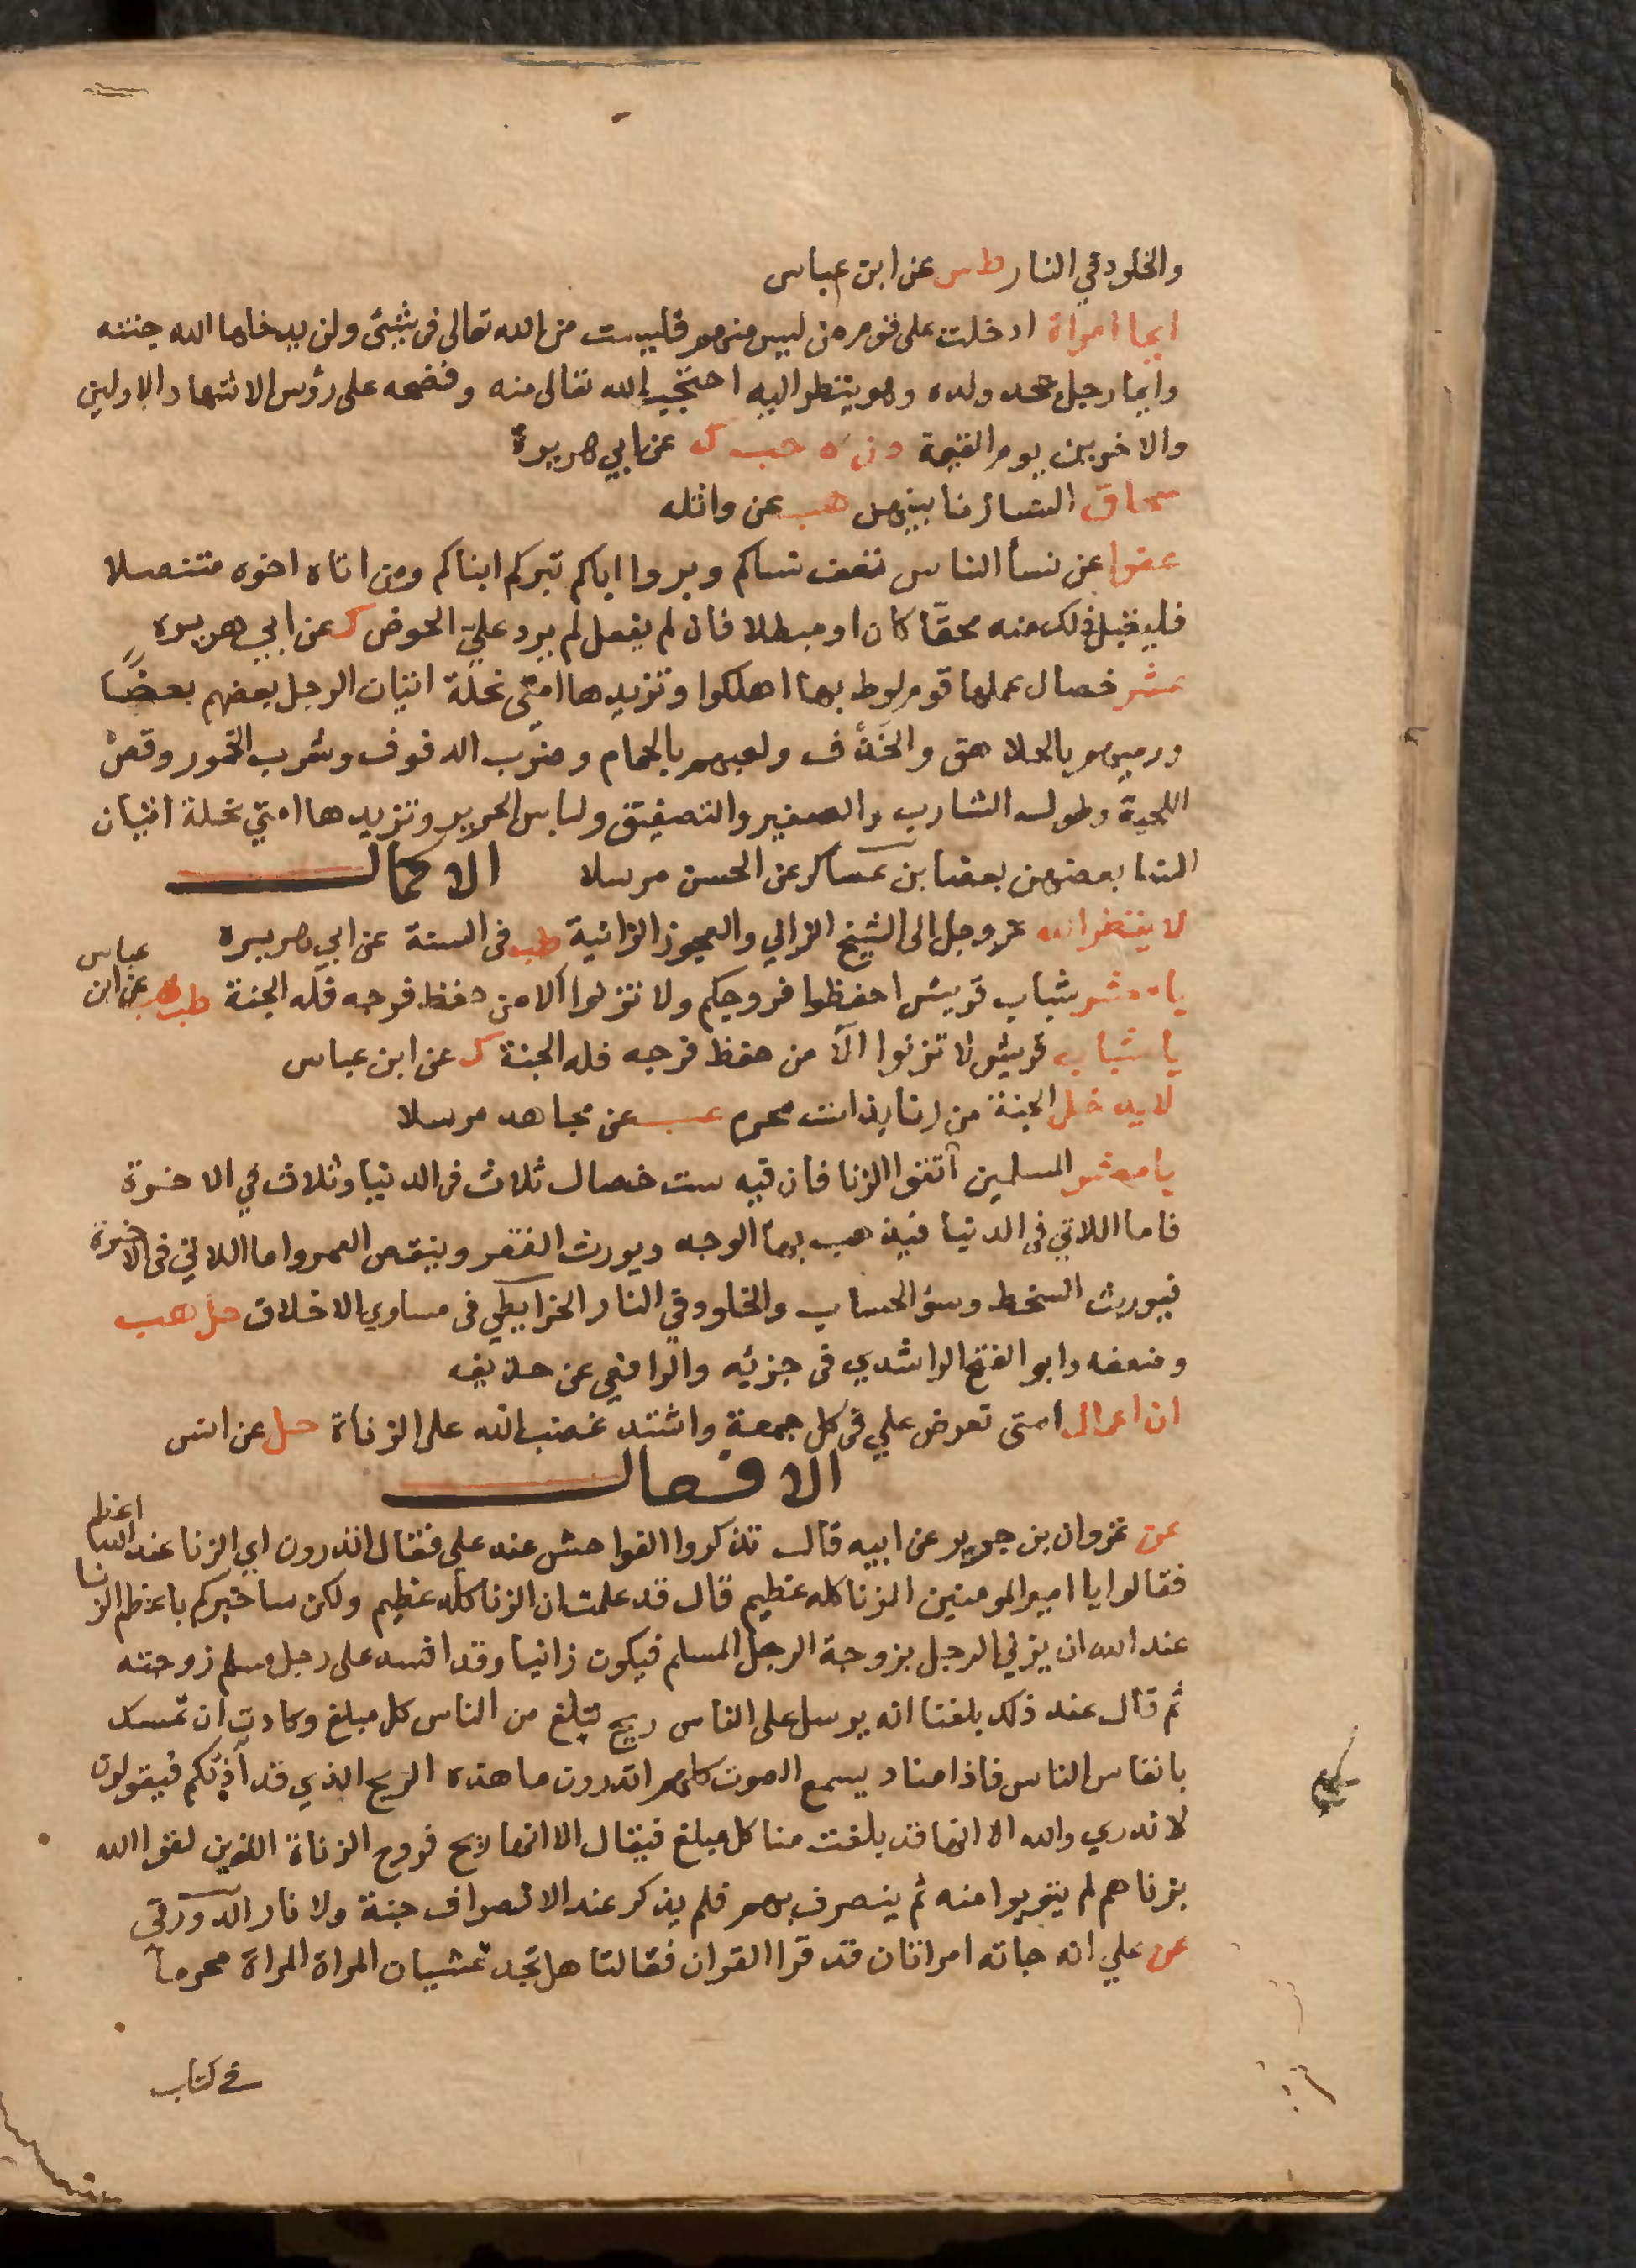 والخلود في النار طس عن ابن عباس
ايما امراة ادخلت على قوم من ليس منهم فليست من الله تعالى فى شئ ولن يدخلها الله جنته
وايما رجل جحد ولده وهو ينظر اليه احتجب الله تعالى منه وفضحه على رؤس الاشهاد الاولين
والاخرين يوم القيمة د ن ه حب ك عن ابي هريرة
سحاق النساء زنا بينهن هب عن واثله
عفوا عن نسأ الناس تعف نساكم وبروا اباكم تبركم ابناكم ومن اتاه اخوه متنصلا
فليقبل ذلك منه محقّا كان او مبطلا فان لم يفعل لم يرد عليّ الحوض ك عن ابي هريره
عشر خصال عملها قوم لوط بها اهلكوا وتزيدها امتي بخلة اتيان الرجل بعضهم بعضًا
ورميهم بالجلاهق والخذف ولعبهم بالحمام وضرب الدفوف وشرب الخمور وقص
اللحية وطول الشارب والصفير والتصفيق ولباس الحرير وتزيدها امتي بخلة اتيان
النسا بعضهن بعضا بن عساكر عن الحسن مرسلا الاكمال
لا ينظر الله عز وجل الى الشيخ الزاني والعجوز الزانية طب فى السنة عن ابي هريره
يا معشر شباب قريش احفظوا فروجكم ولا تزنوا الا من حفظ فرجه فله الجنة طب هب عن ابن عباس
يا شباب قريش لا تزنوا الّا من حفظ فرجه فله الجنة ك عن ابن عباس
لا يدخل الجنة من زنا بذات محرم عب عن مجاهد مرسلا
يا معشر المسلمين اتقوا الزنا فان فيه ست خصال ثلاث فى الدنيا وثلاث في الاخرة
فاما اللاتي فى الدنيا فيذهب بهاء الوجه ويورث الفقر وينقص العمر واما اللاتي فى الاخرة
فيورث السخط وسؤ الحساب والخلود في النار الخرايطي فى مساوي الاخلاق حل هب
وضعفه وابو الفتح الراشدي فى جزئه والرافعي عن حذيفه
ان اعمال امتى تعرض علي فى كل جمعة واشتد غضب الله على الزناة حل عن انس
الافعال
عن غزوان بن جرير عن ابيه قال تذكروا الفواحش عند علي فقال اتدرون اي الزنا عند الله اعظم
فقالوا يا امير المومنين الزنا كله عظيم قال قد علمت ان الزنا كله عظيم ولكن ساخبركم باعظم الزنا
عند الله ان يزني الرجل بزوجة الرجل المسلم فيكون زانيا وقد افسد على رجل مسلم زوجته
ثم قال عند ذلك بلغنا انه يرسل على الناس ريح تبلغ من الناس كل مبلغ وكادت ان تمسك
بانفاس الناس فاذا مناد يسمع الصوت كلهم اتدرون ما هذه الريح الذي قد آذتكم فيقولون
لا ندري والله الا انها قد بلغت منا كل مبلغ فيقال الا انها ريح فروج الزناة الذين لقوا الله
بزناهم لم يتوبوا منه ثم ينصرف بهم فلم يذكر عند الانصراف جنة ولا نار الدورقي
عن علي انه جاته امراتان قد قرا القران فقالتا هل تجد غشيان المراة المراة محرما
في كتاب